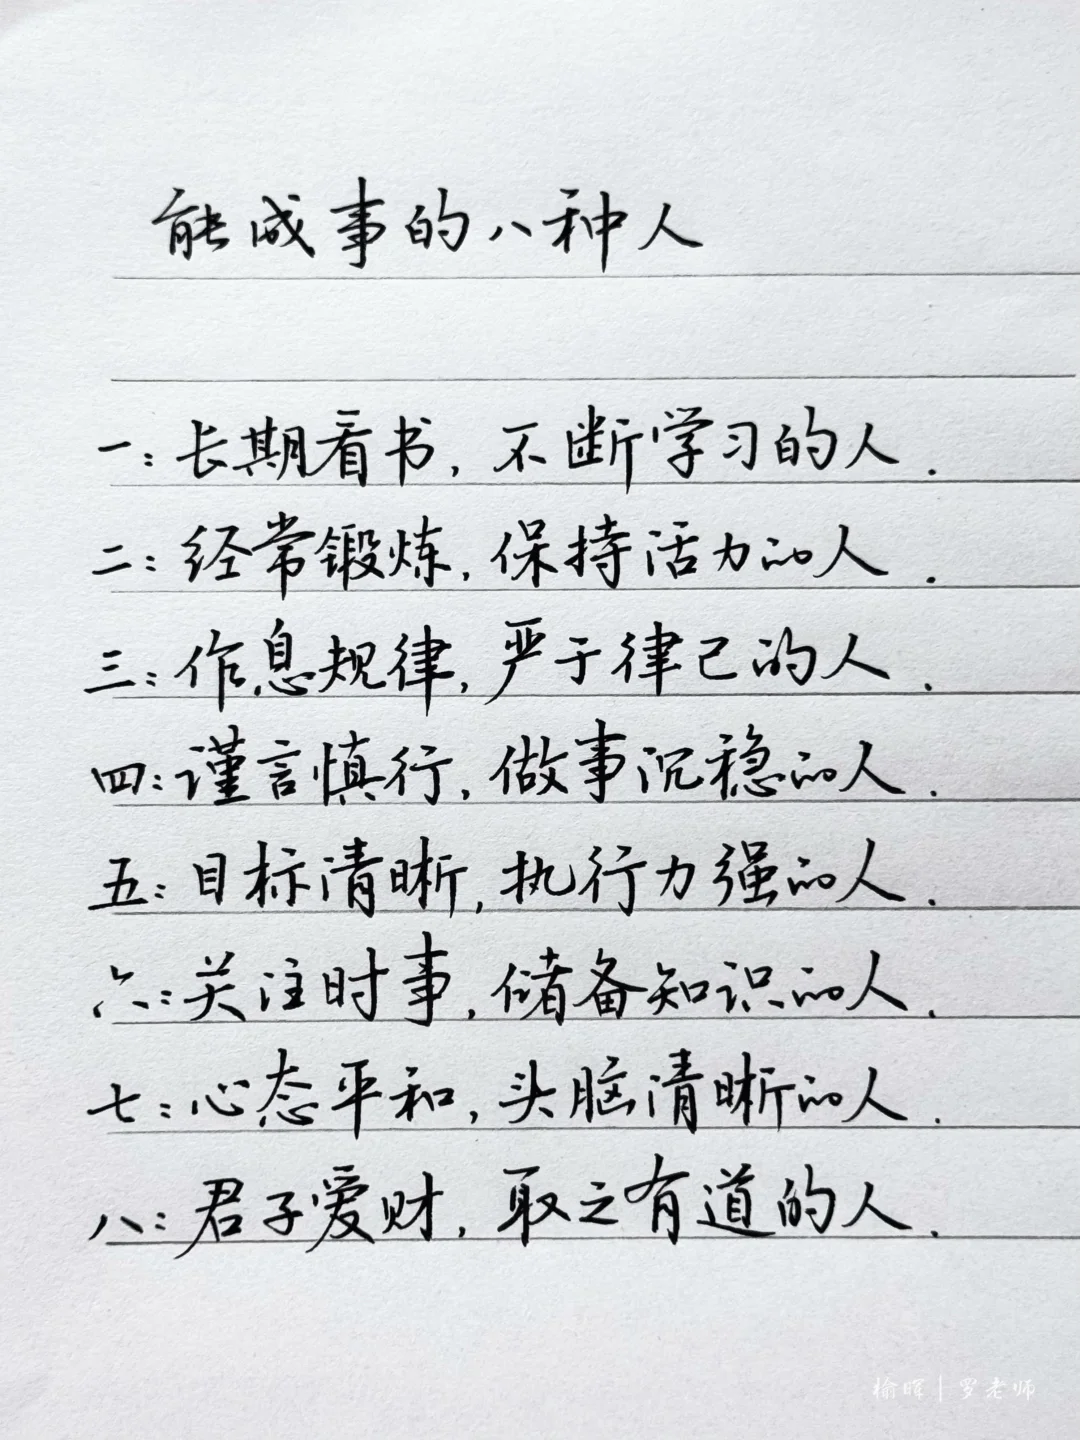 能成事的八种人
一:长期看书,不断学习的人.
二:经常锻炼,保持活力的人.
三:作息规律,严于律己的人.
四:谨言慎行,做事沉稳的人.
五:目标清晰,执行力强的人.
六:关注时事,储备知识的人.
七:心态平和,头脑清晰的人.
八:君子爱财,取之有道的人.
榆晖|罗老师